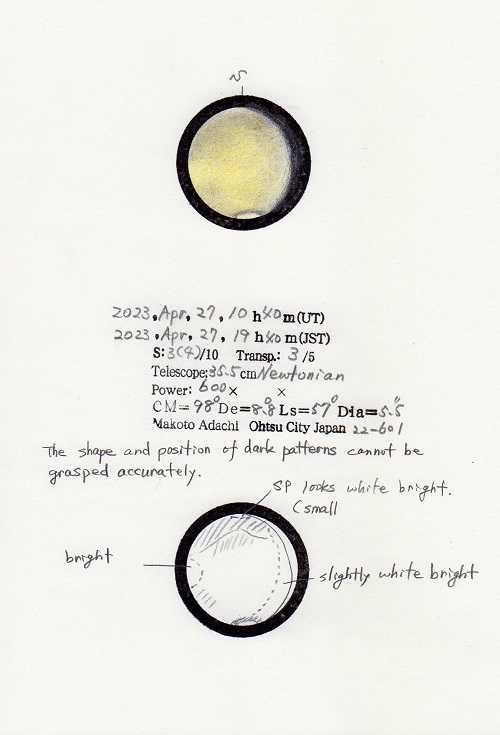 N
2023, Apr, 27, 10 h 40 m (UT)
2023, Apr, 27, 19 h 40 m (JST)
S: 3(4)/10 Transp.: 3 /5
Telescope: 35.5 cm Newtonian
Power: 600× ×
CM= 98° De= 8.8° Ls= 57° Dia= 5.5"
Makoto Adachi Ohtsu City Japan 22-601
The shape and position of dark patterns cannot be
grasped accurately.
SP looks white bright.
(small
bright
slightly white bright